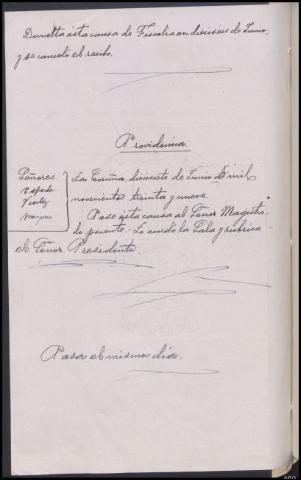 Devuelta esta causa de Fiscalia en dieciseis de Junio,
y se canceló el recibo.
Providencia
Señores
La Coruña, diecisiete de Junio de mil
novecientos treinta y nueve.
Pase esta causa al Señor Magistra-
do ponente. Lo acordó la Sala y rubrica
el Señor Presidente.
Pasa el mismo dia.